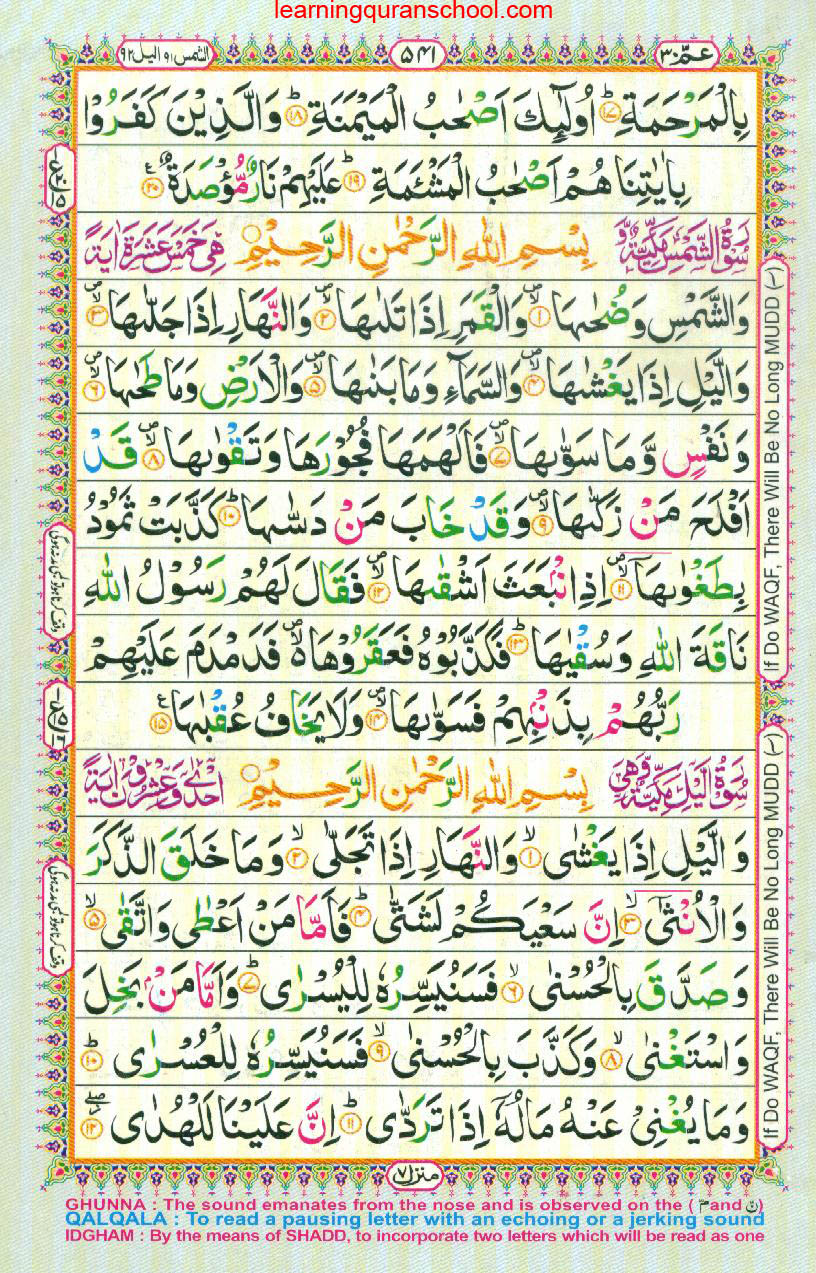 learningquranschool.com
عمّ ٣٠
٥٤١
الشمس ٩١ اليل ٩٢
بِالْمَرْحَمَةِ ؕ﴿۱۷﴾ اُولٰٓئِكَ اَصْحٰبُ الْمَیْمَنَةِ ؕ﴿۱۸﴾ وَالَّذِیْنَ كَفَرُوْا
بِاٰیٰتِنَا هُمْ اَصْحٰبُ الْمَشْـَٔمَةِ ؕ﴿۱۹﴾ عَلَیْهِمْ نَارٌ مُّؤْصَدَةٌ ﴿۲۰﴾
سُوْرَةُ الشَّمْسِ مَكِّیَّةٌ وَّ بِسْمِ اللّٰهِ الرَّحْمٰنِ الرَّحِیْمِ هِیَ خَمْسَ عَشْرَةَ اٰیَةً
وَالشَّمْسِ وَضُحٰىهَا ﴿۱﴾ وَالْقَمَرِ اِذَا تَلٰىهَا ﴿۲﴾ وَالنَّهَارِ اِذَا جَلّٰىهَا ﴿۳﴾
وَالَّیْلِ اِذَا یَغْشٰىهَا ﴿۴﴾ وَالسَّمَآءِ وَمَا بَنٰىهَا ﴿۵﴾ وَالْاَرْضِ وَمَا طَحٰىهَا ﴿۶﴾
وَنَفْسٍ وَّمَا سَوّٰىهَا ﴿۷﴾ فَاَلْهَمَهَا فُجُوْرَهَا وَتَقْوٰىهَا ﴿۸﴾ قَدْ
اَفْلَحَ مَنْ زَكّٰىهَا ﴿۹﴾ وَقَدْ خَابَ مَنْ دَسّٰىهَا ؕ﴿۱۰﴾ كَذَّبَتْ ثَمُوْدُ
بِطَغْوٰىهَا ﴿۱۱﴾ اِذِ انْۢبَعَثَ اَشْقٰىهَا ﴿۱۲﴾ فَقَالَ لَهُمْ رَسُوْلُ اللّٰهِ
نَاقَةَ اللّٰهِ وَسُقْیٰهَا ؕ﴿۱۳﴾ فَكَذَّبُوْهُ فَعَقَرُوْهَا فَدَمْدَمَ عَلَیْهِمْ
رَبُّهُمْ بِذَنْۢبِهِمْ فَسَوّٰىهَا ﴿۱۴﴾ وَلَا یَخَافُ عُقْبٰهَا ﴿۱۵﴾
سُوْرَةُ الَّیْلِ مَكِّیَّةٌ وَّهِیَ بِسْمِ اللّٰهِ الرَّحْمٰنِ الرَّحِیْمِ اِحْدٰی وَعِشْرُوْنَ اٰیَةً
وَالَّیْلِ اِذَا یَغْشٰی ﴿۱﴾ وَالنَّهَارِ اِذَا تَجَلّٰی ﴿۲﴾ وَمَا خَلَقَ الذَّكَرَ
وَالْاُنْثٰۤی ﴿۳﴾ اِنَّ سَعْیَكُمْ لَشَتّٰی ؕ﴿۴﴾ فَاَمَّا مَنْ اَعْطٰی وَاتَّقٰی ﴿۵﴾
وَصَدَّقَ بِالْحُسْنٰی ﴿۶﴾ فَسَنُیَسِّرُهٗ لِلْیُسْرٰی ؕ﴿۷﴾ وَاَمَّا مَنْۢ بَخِلَ
وَاسْتَغْنٰی ﴿۸﴾ وَكَذَّبَ بِالْحُسْنٰی ﴿۹﴾ فَسَنُیَسِّرُهٗ لِلْعُسْرٰی ؕ﴿۱۰﴾
وَمَا یُغْنِیْ عَنْهُ مَالُهٗۤ اِذَا تَرَدّٰی ؕ﴿۱۱﴾ اِنَّ عَلَیْنَا لَلْهُدٰی ﴿۱۲﴾
If Do WAQF, There Will Be No Long MUDD (~)
If Do WAQF, There Will Be No Long MUDD (~)
منزل ٧
GHUNNA : The sound emanates from the nose and is observed on the ( مّ and نّ)
QALQALA : To read a pausing letter with an echoing or a jerking sound
IDGHAM : By the means of SHADD, to incorporate two letters which will be read as one